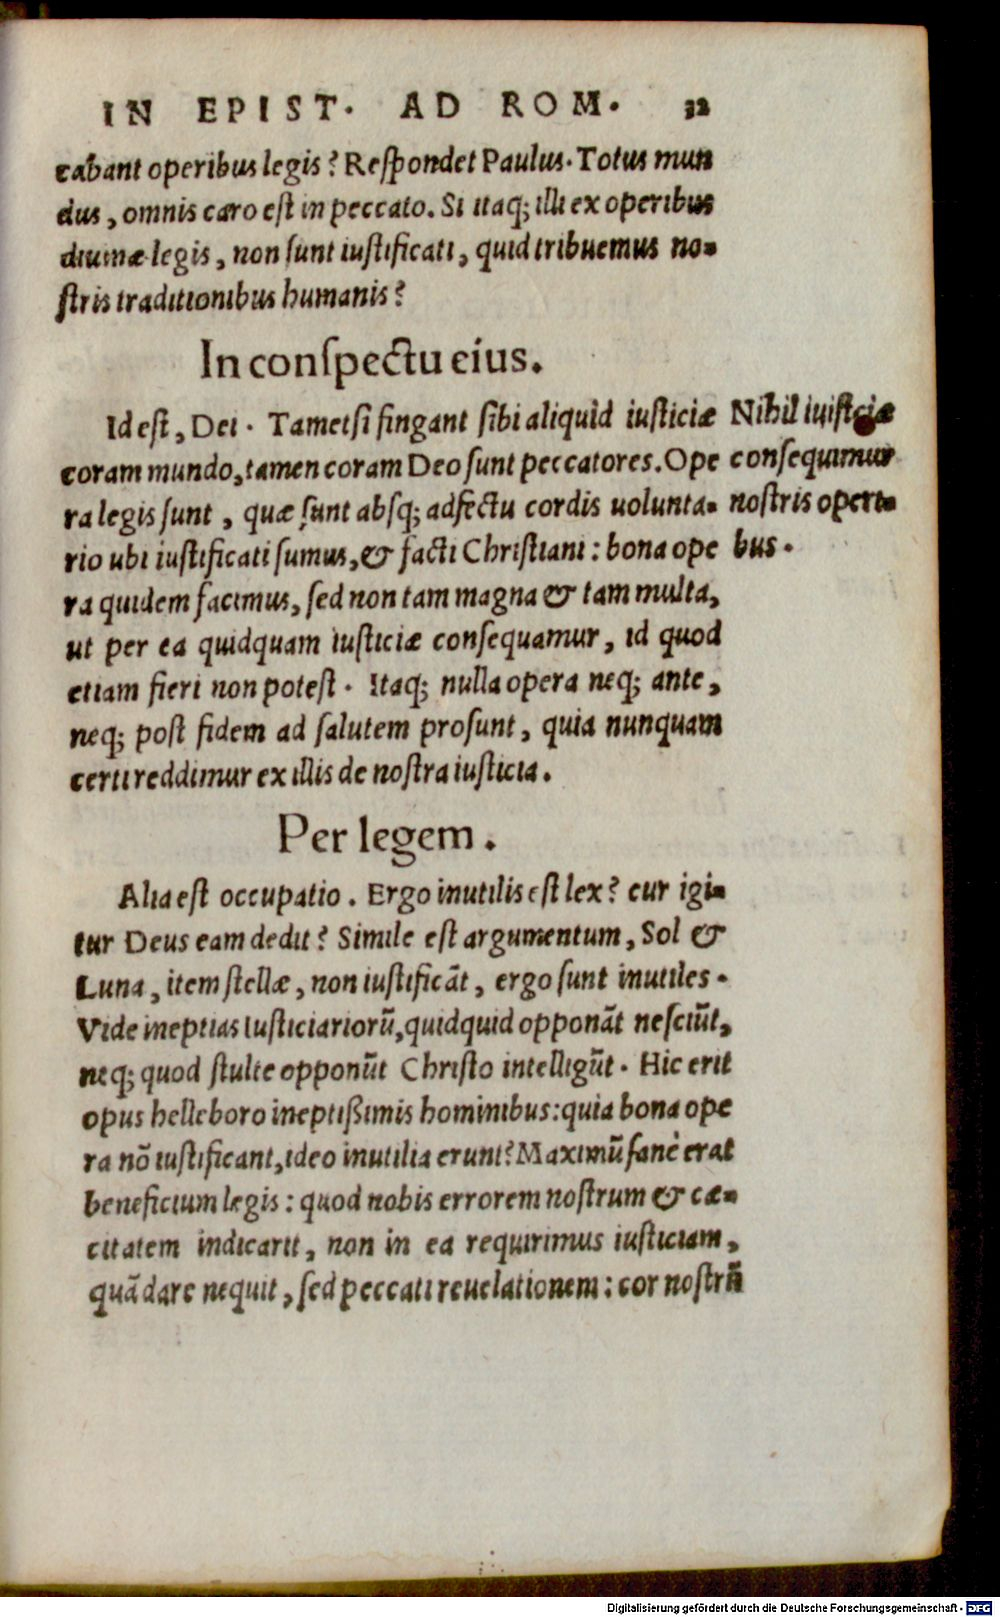 IN EPIST. AD ROM. 32
cabant operibus legis? Respondet Paulus. Totus mun
dus, omnis caro est in peccato. Si itaq; illi ex operibus
diuinæ legis, non sunt iustificati, quid tribuemus no-
stris traditionibus humanis?
In conspectu eius.
Id est, Dei. Tametsi fingant sibi aliquid iusticiæ
coram mundo, tamen coram Deo sunt peccatores. Ope
ra legis sunt, quæ sunt absq; adfectu cordis uolunta-
rio ubi iustificati sumus, & facti Christiani: bona ope
ra quidem facimus, sed non tam magna & tam multa,
ut per ea quidquam iusticiæ consequamur, id quod
etiam fieri non potest. Itaq; nulla opera neq; ante,
neq; post fidem ad salutem prosunt, quia nunquam
certi reddimur ex illis de nostra iusticia.
Nihil iuisticiæ
consequimur
nostris operi-
bus.
Per legem.
Alia est occupatio. Ergo inutilis est lex? cur igi-
tur Deus eam dedit? Simile est argumentum, Sol &
Luna, item stellæ, non iustificāt, ergo sunt inutiles.
Vide ineptias Iusticiariorū, quidquid opponāt nesciūt,
neq; quod stulte opponūt Christo intelligūt. Hic erit
opus helleboro ineptißimis hominibus: quia bona ope
ra nō iustificant, ideo inutilia erunt? Maximū sanè erat
beneficium legis: quod nobis errorem nostrum & cæ-
citatem indicarit, non in ea requirimus iusticiam,
quā dare nequit, sed peccati reuelationem: cor nostrū
Digitalisierung gefördert durch die Deutsche Forschungsgemeinschaft - DFG